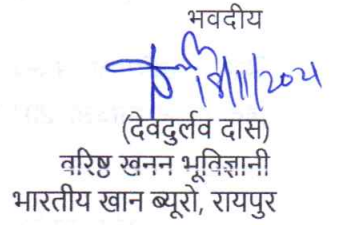 भवदीय
18/11/2021
(देवदुर्लव दास)
वरिष्ठ खनन भूविज्ञानी
भारतीय खान ब्यूरो, रायपुर